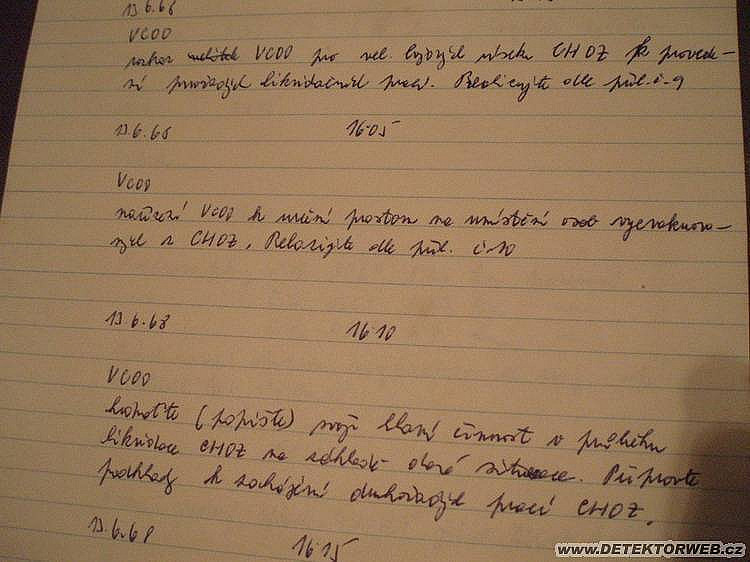 13.6.68
VCOO
rozkaz VCOO pro vel. CHOZ k provede-
ní likvidačních prací. Realizujte dle příl. č. 9
13.6.68 16.05
VCOO
nařízení VCOO k určení prostoru na umístění osob vyevakuova-
ných z CHOZ. Realizujte dle příl. č. 10
13.6.68 16.10
VCOO
hodnoťte (popište) svoji hlavní činnost v průběhu
likvidace CHOZ na základě dané situace. Připravte
podklady k zahájení druhořadých prací CHOZ.
13.6.68 16.15
www.DETEKTORWEB.cz